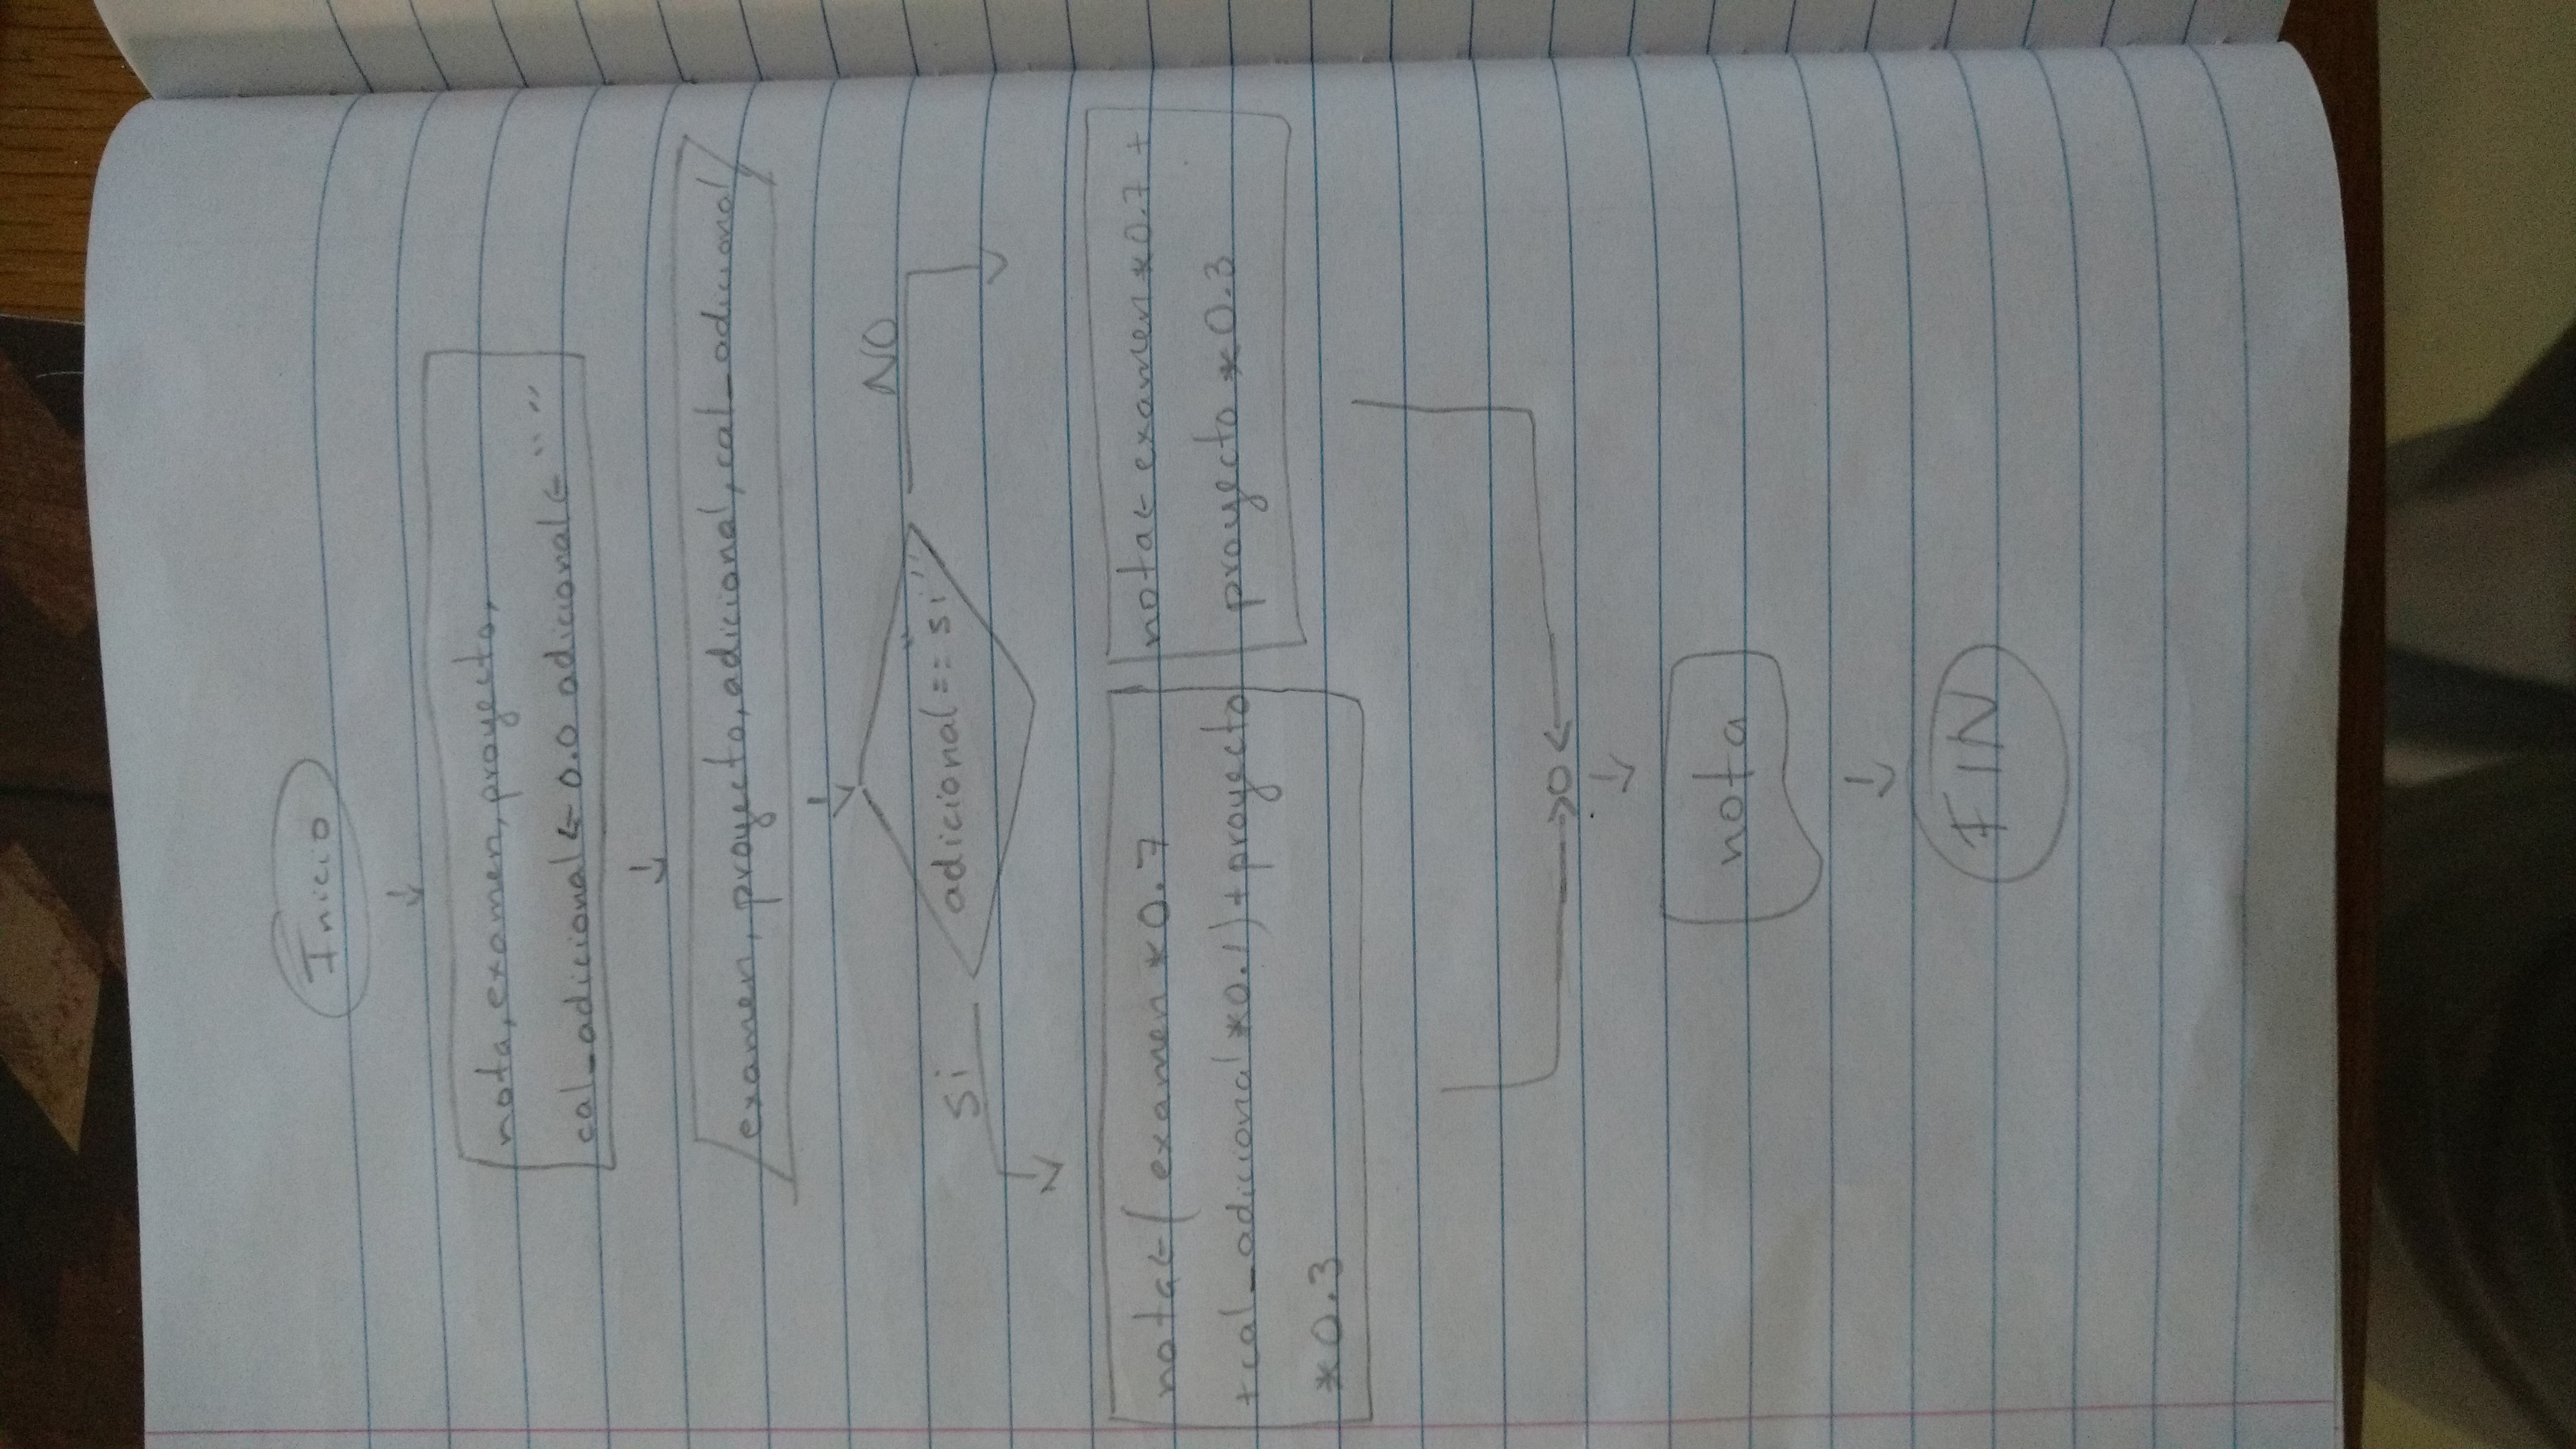 Inicio
nota, examen, proyecto,
cal_adicional ← 0.0 adicional ← " "
examen, proyecto, adicional, cal_adicional
adicional == "si"
Si
NO
nota ← (examen * 0.7
+ cal_adicional * 0.1) + proyecto
* 0.3
nota ← examen * 0.7 +
proyecto * 0.3
nota
FIN